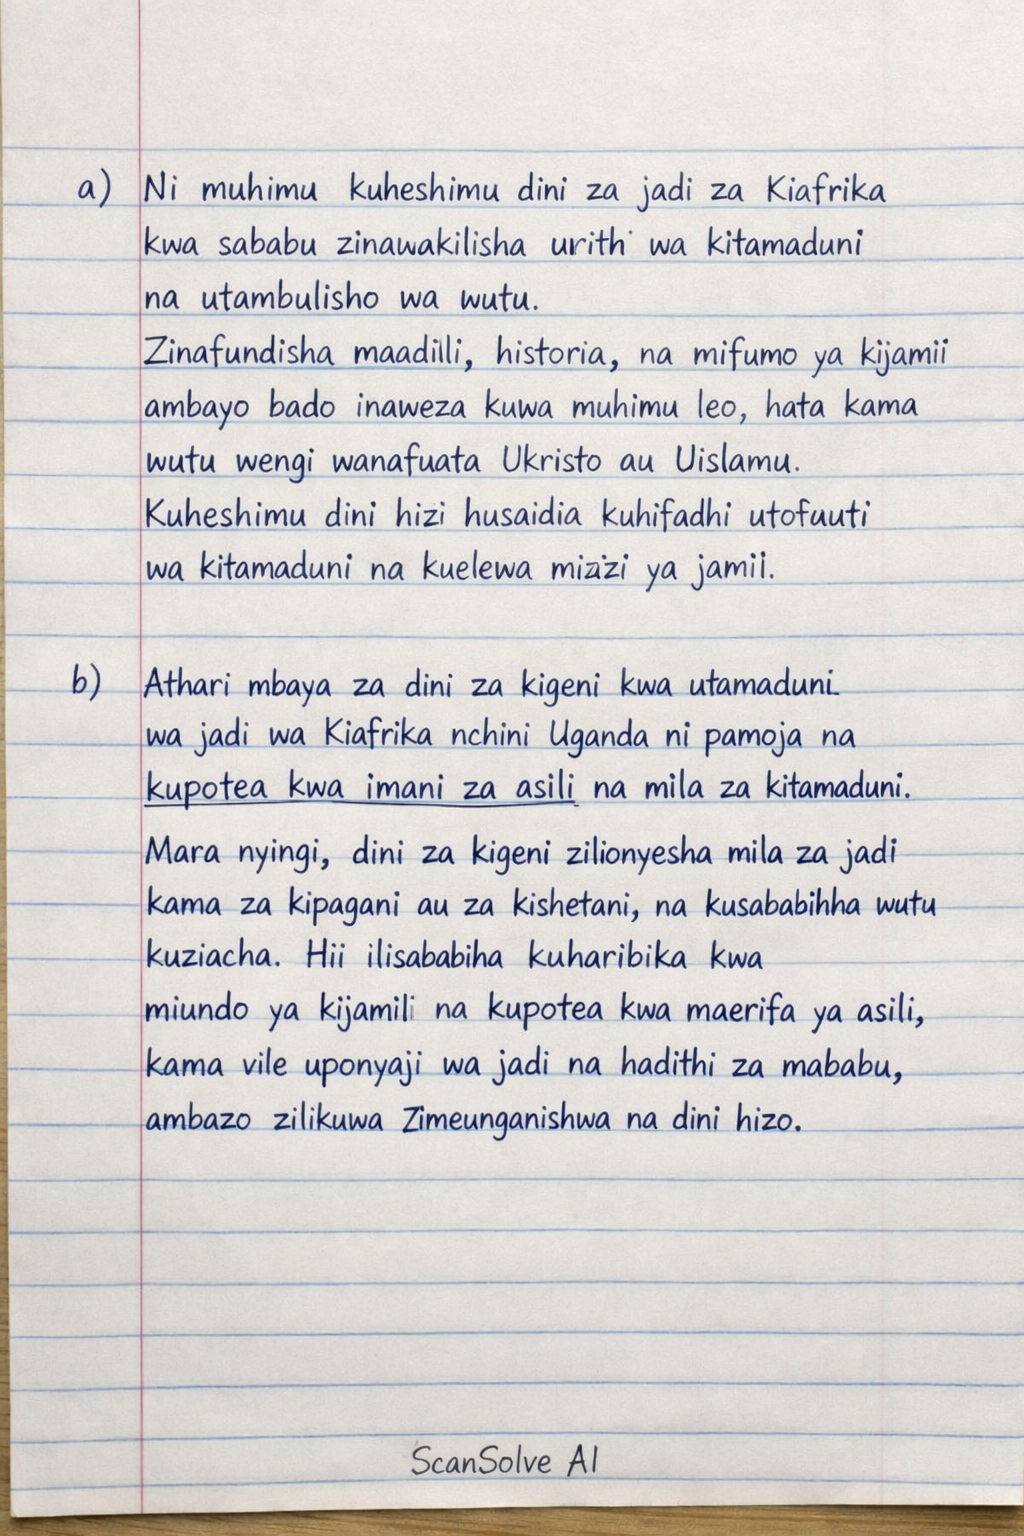 a) Ni muhimu kuheshimu dini za jadi za Kiafrika
kwa sababu zinawakilisha urith wa kitamaduni
na utambulisho wa wutu.
Zinafundisha maadilli, historia, na mifumo ya kijamii
ambayo bado inaweza kuwa muhimu leo, hata kama
wutu wengi wanafuata Ukristo au Uislamu.
Kuheshimu dini hizi husaidia kuhifadhi utofuuti
wa kitamaduni na kuelewa mizizi ya jamii.
b) Athari mbaya za dini za kigeni kwa utamaduni
wa jadi wa Kiafrika nchini Uganda ni pamoja na
kupotea kwa imani za asili na mila za kitamaduni.
Mara nyingi, dini za kigeni zilionyesha mila za jadi
kama za kipagani au za kishetani, na kusababihha wutu
kuziacha. Hii ilisababiha kuharibika kwa
miundo ya kijamili na kupotea kwa maerifa ya asili,
kama vile uponyaji wa jadi na hadithi za mababu,
ambazo zilikuwa Zimeunganishwa na dini hizo.
ScanSolve AI